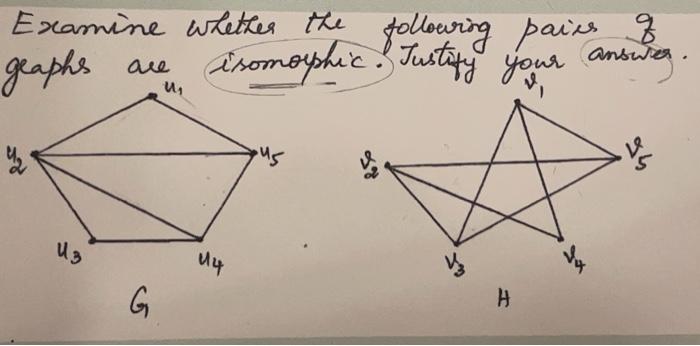 Examine whether the following pairs of
graphs are isomorphic. Justify your answer.
u₁ v₁
u₂ u₅ v₂ v₅
u₃ u₄ v₃ v₄
G H